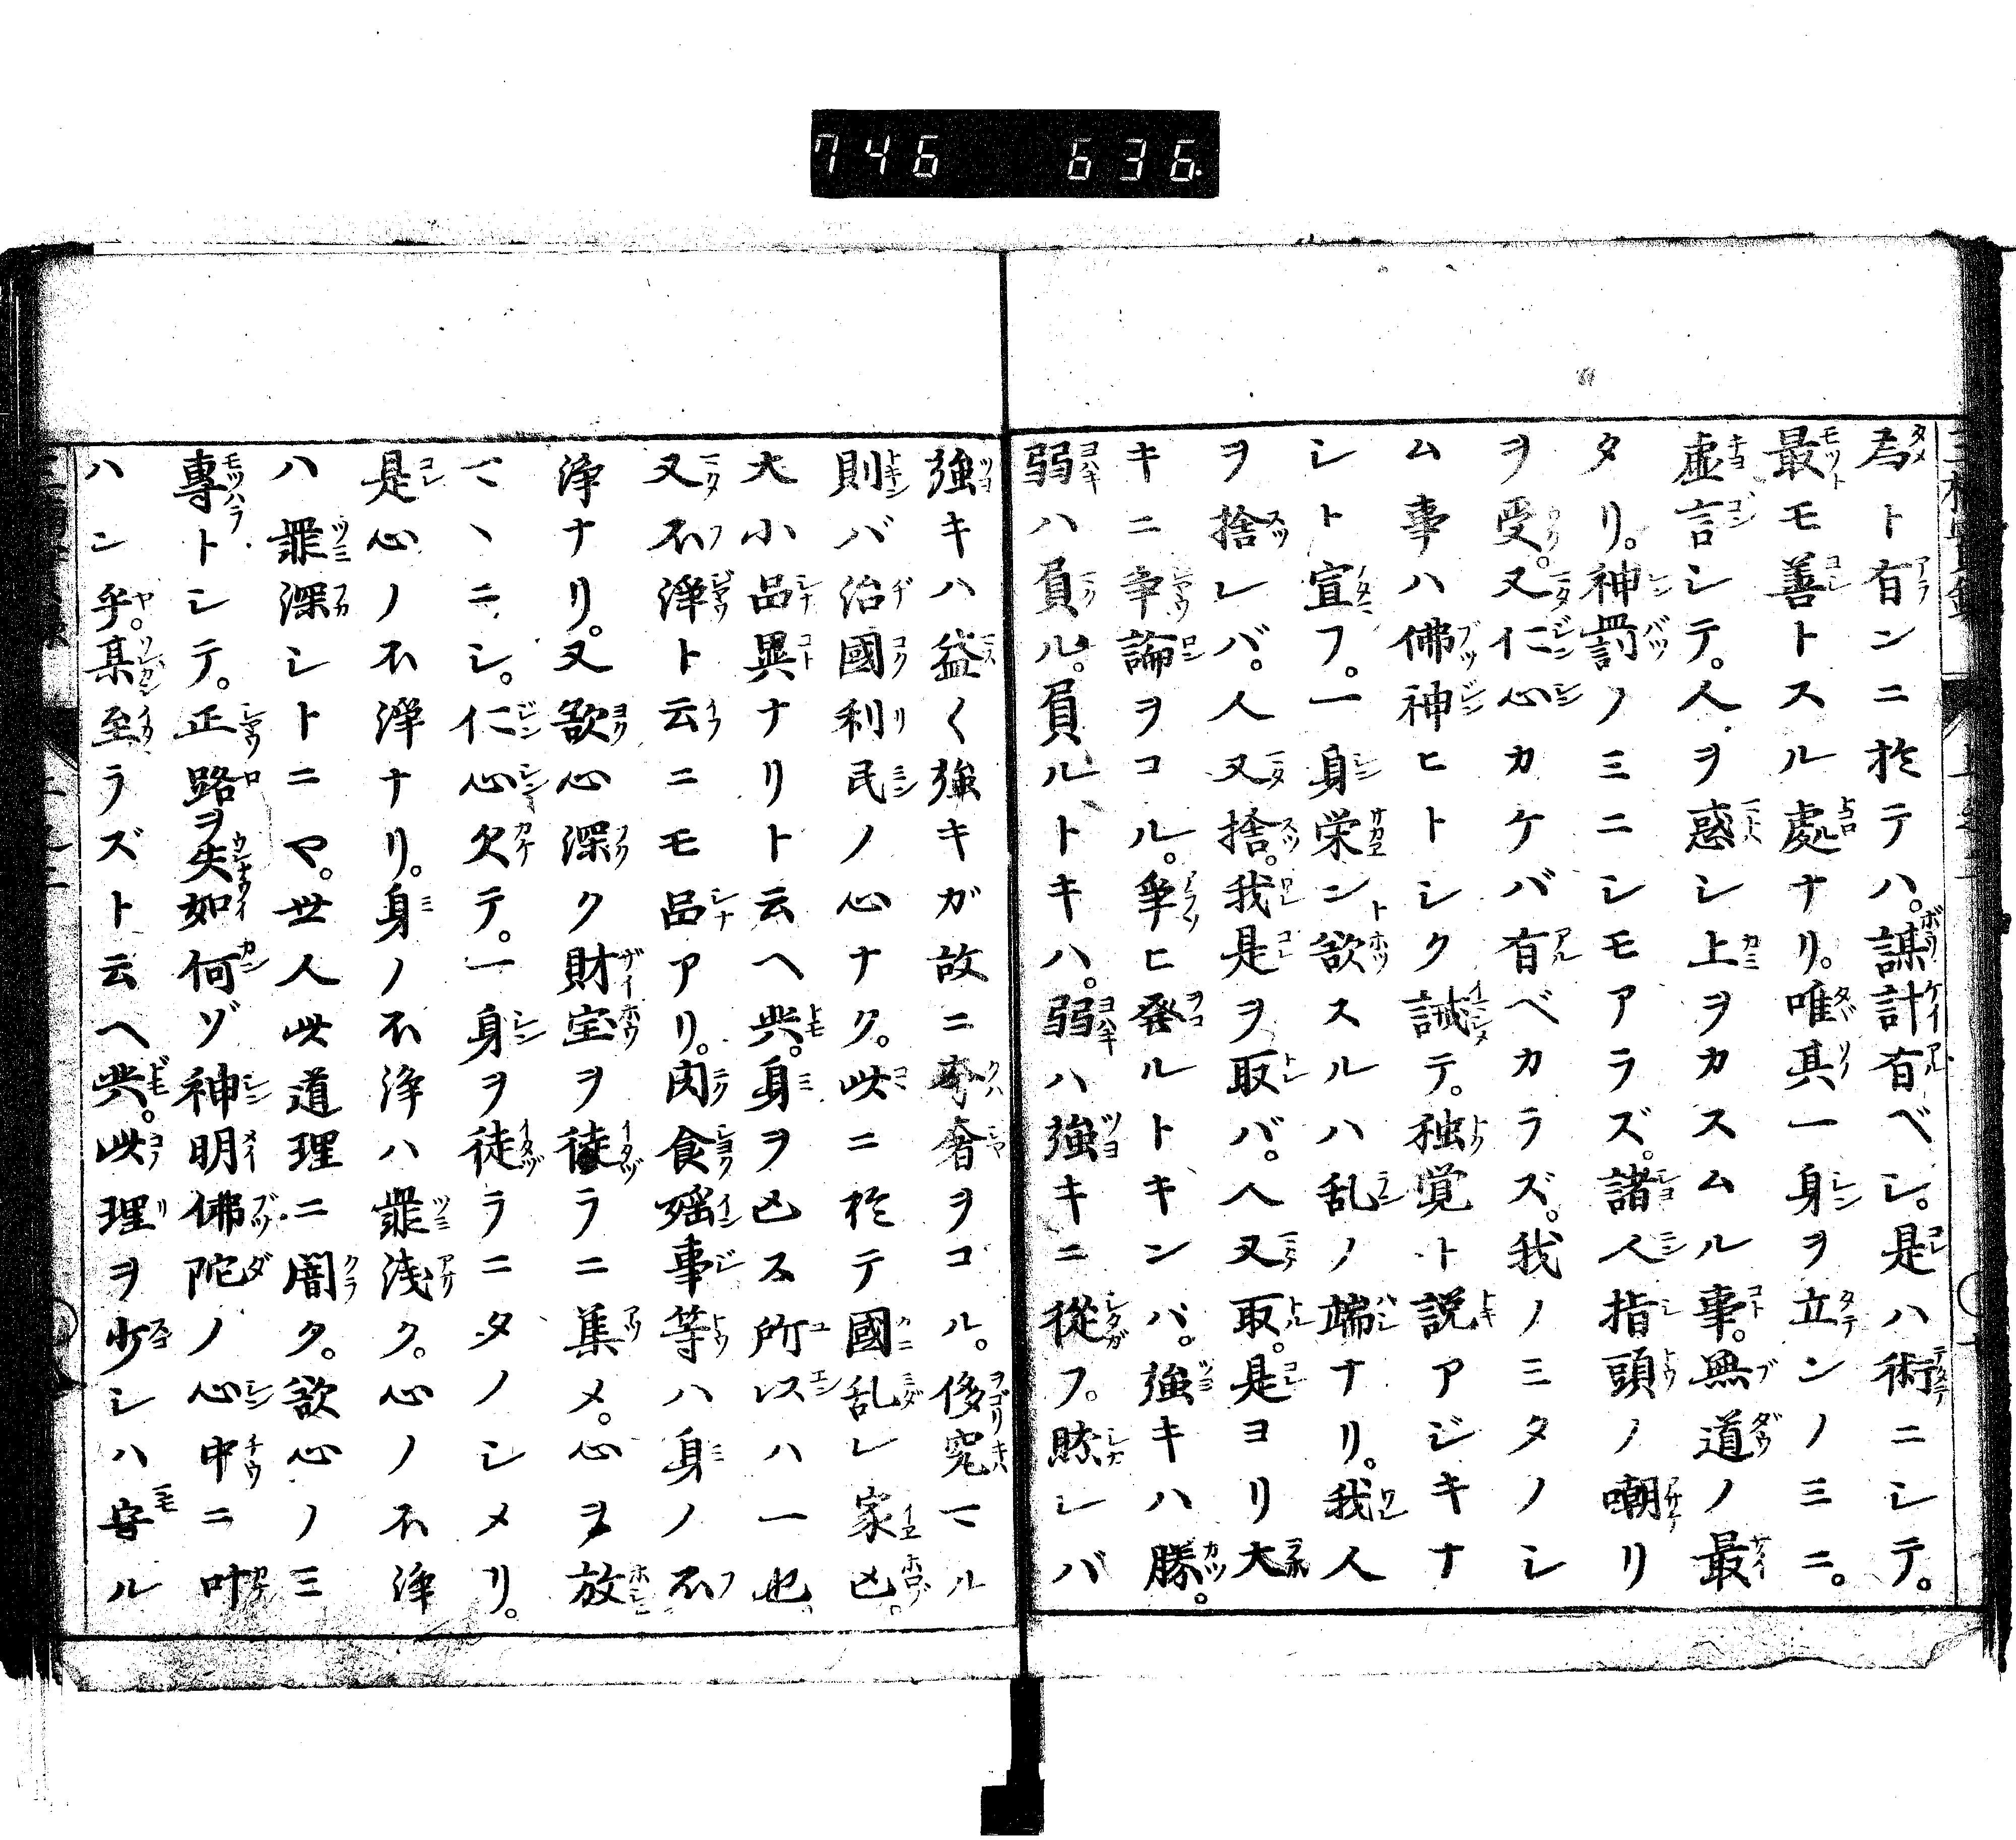 746 636.
為ト有ンニ於テハ。謀計有ベシ。是ハ術ニシテ。
最モ善トスル處ナリ。唯其一身ヲ立ンノミニ。
虚言シテ。人ヲ惑シ上ヲカスムル事。無道ノ最
タリ。神罰ノミニシモアラズ。諸人指頭ノ嘲リ
ヲ受。又仁心カケバ有ベカラズ。我ノミタノシ
ム事ハ佛神ヒトシク誡テ。独覚ト説アジキナ
シト宣フ。一身栄ント欲スルハ乱ノ端ナリ。我人
ヲ捨レバ。人又捨。我是ヲ取バ。人又取。是ヨリ大
キニ争論ヲコル。争ヒ発ルトキンバ。強キハ勝。
弱ハ負ル。負ルトキハ。弱ハ強キニ從フ。勝レバ
強キハ益〱強キガ故ニ夸奢ヲコル。侈究マル
則バ治國利民ノ心ナク。此ニ於テ國乱レ家亡。
大小品異ナリト云ヘ共。身ヲ亡ス所以ハ一也。
又不淨ト云ニモ品アリ。肉食婬事等ハ身ノ不
淨ナリ。又欲心深ク財宝ヲ徒ラニ集メ。心ヲ放
マヽニシ。仁心欠テ。一身ヲ徒ラニタノシメリ。
是心ノ不淨ナリ。身ノ不淨ハ罪浅ク。心ノ不淨
ハ罪深シトニヤ。世人此道理ニ闇ク。欲心ノミ
專トシテ。正路ヲ失如何ゾ神明佛陀ノ心中ニ叶
ハン乎。某至ラズト云ヘ共。此理ヲ少シハ守ル